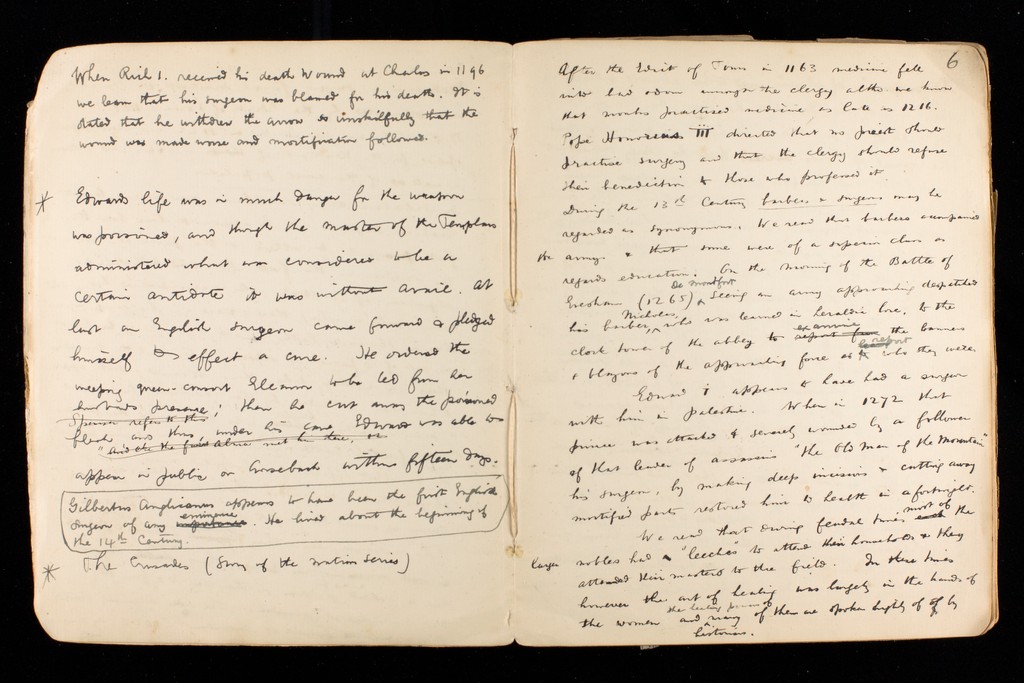 When Rich 1. received his death wound at Chalus in 1196
we learn that his surgeon was blamed for his death. It is
stated that he withdrew the arrow so unskilfully that the
wound was made worse and mortification followed.
* Edwards life was in much danger for the weapon
was poisoned, and though the master of the Templars
administered what was considered to be a
certain antidote it was without avail. At
last an English surgeon came forward & pledged
himself to effect a cure. He ordered the
weeping queen-consort Eleanor to be led from her
husbands presence; then he cut away the poisoned
Spencer refers to this
flesh and thus under his care Edward was able to
appear in public on horseback within fifteen days.
Gilbertus Anglicanus appears to have been the first English
surgeon of any importance eminence. He lived about the beginning of
the 14th Century.
* The Crusades (Story of the nation series)
6
After the Edict of Tours in 1163 medicine fell
into bad odour amongst the clergy altho we know
that monks practised medicine as late as 1216.
Pope Honorius III directed that no priest should
practise surgery and that the clergy should refuse
their benediction to those who professed it
During the 13th Century barbers & surgeons may be
regarded as synonymous. We read that barbers accompanied
the armys & that some were of a superior class as
regards education. On the morning of the Battle of
Evesham (1265) De Montfort seeing an army approaching despatched
his barber, Nicholas, who was learned in heraldic lore, to the
clock tower of the abbey to examine the banners
& blazons of the approaching force & report who they were.
Edward 1 appears to have had a surgeon
with him in Palestine. When in 1272 that
prince was attacked & severely wounded by a follower
of that leader of assassins "the Old Man of the Mountain"
his surgeon, by making deep incisions & cutting away
mortified parts restored him to health in a fortnight.
We read that during feudal times most of the
larger nobles had "leeches" to attend their households & they
attended their masters to the field. In these times
however the art of healing was largely in the hands of
the women and the healing powers of many of them are spoken highly of by
historians.